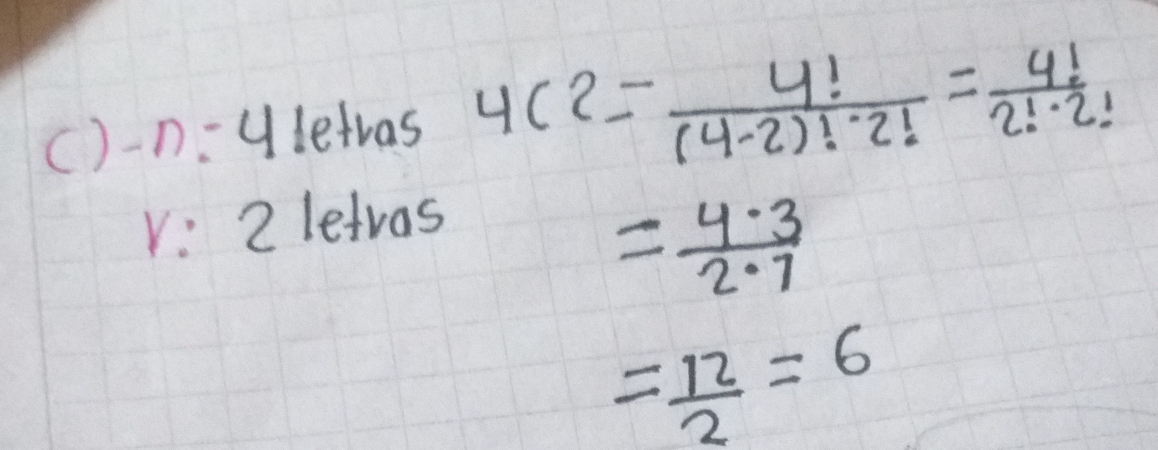 C)-n: 4 letras 4C2 = 4!/((4-2)!·2!) = 4!/(2!·2!)
r: 2 letras = 4·3/2·1
= 12/2 = 6